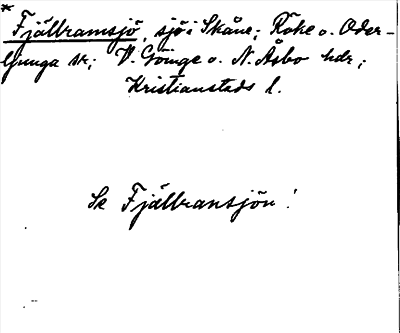 * Fjällramsjö, sjö i Skåne; Röke o. Oder-
ljunga sk; V. Göinge o. N. Åsbo hdr;
Kristianstads l.
Se Fjällransjön!